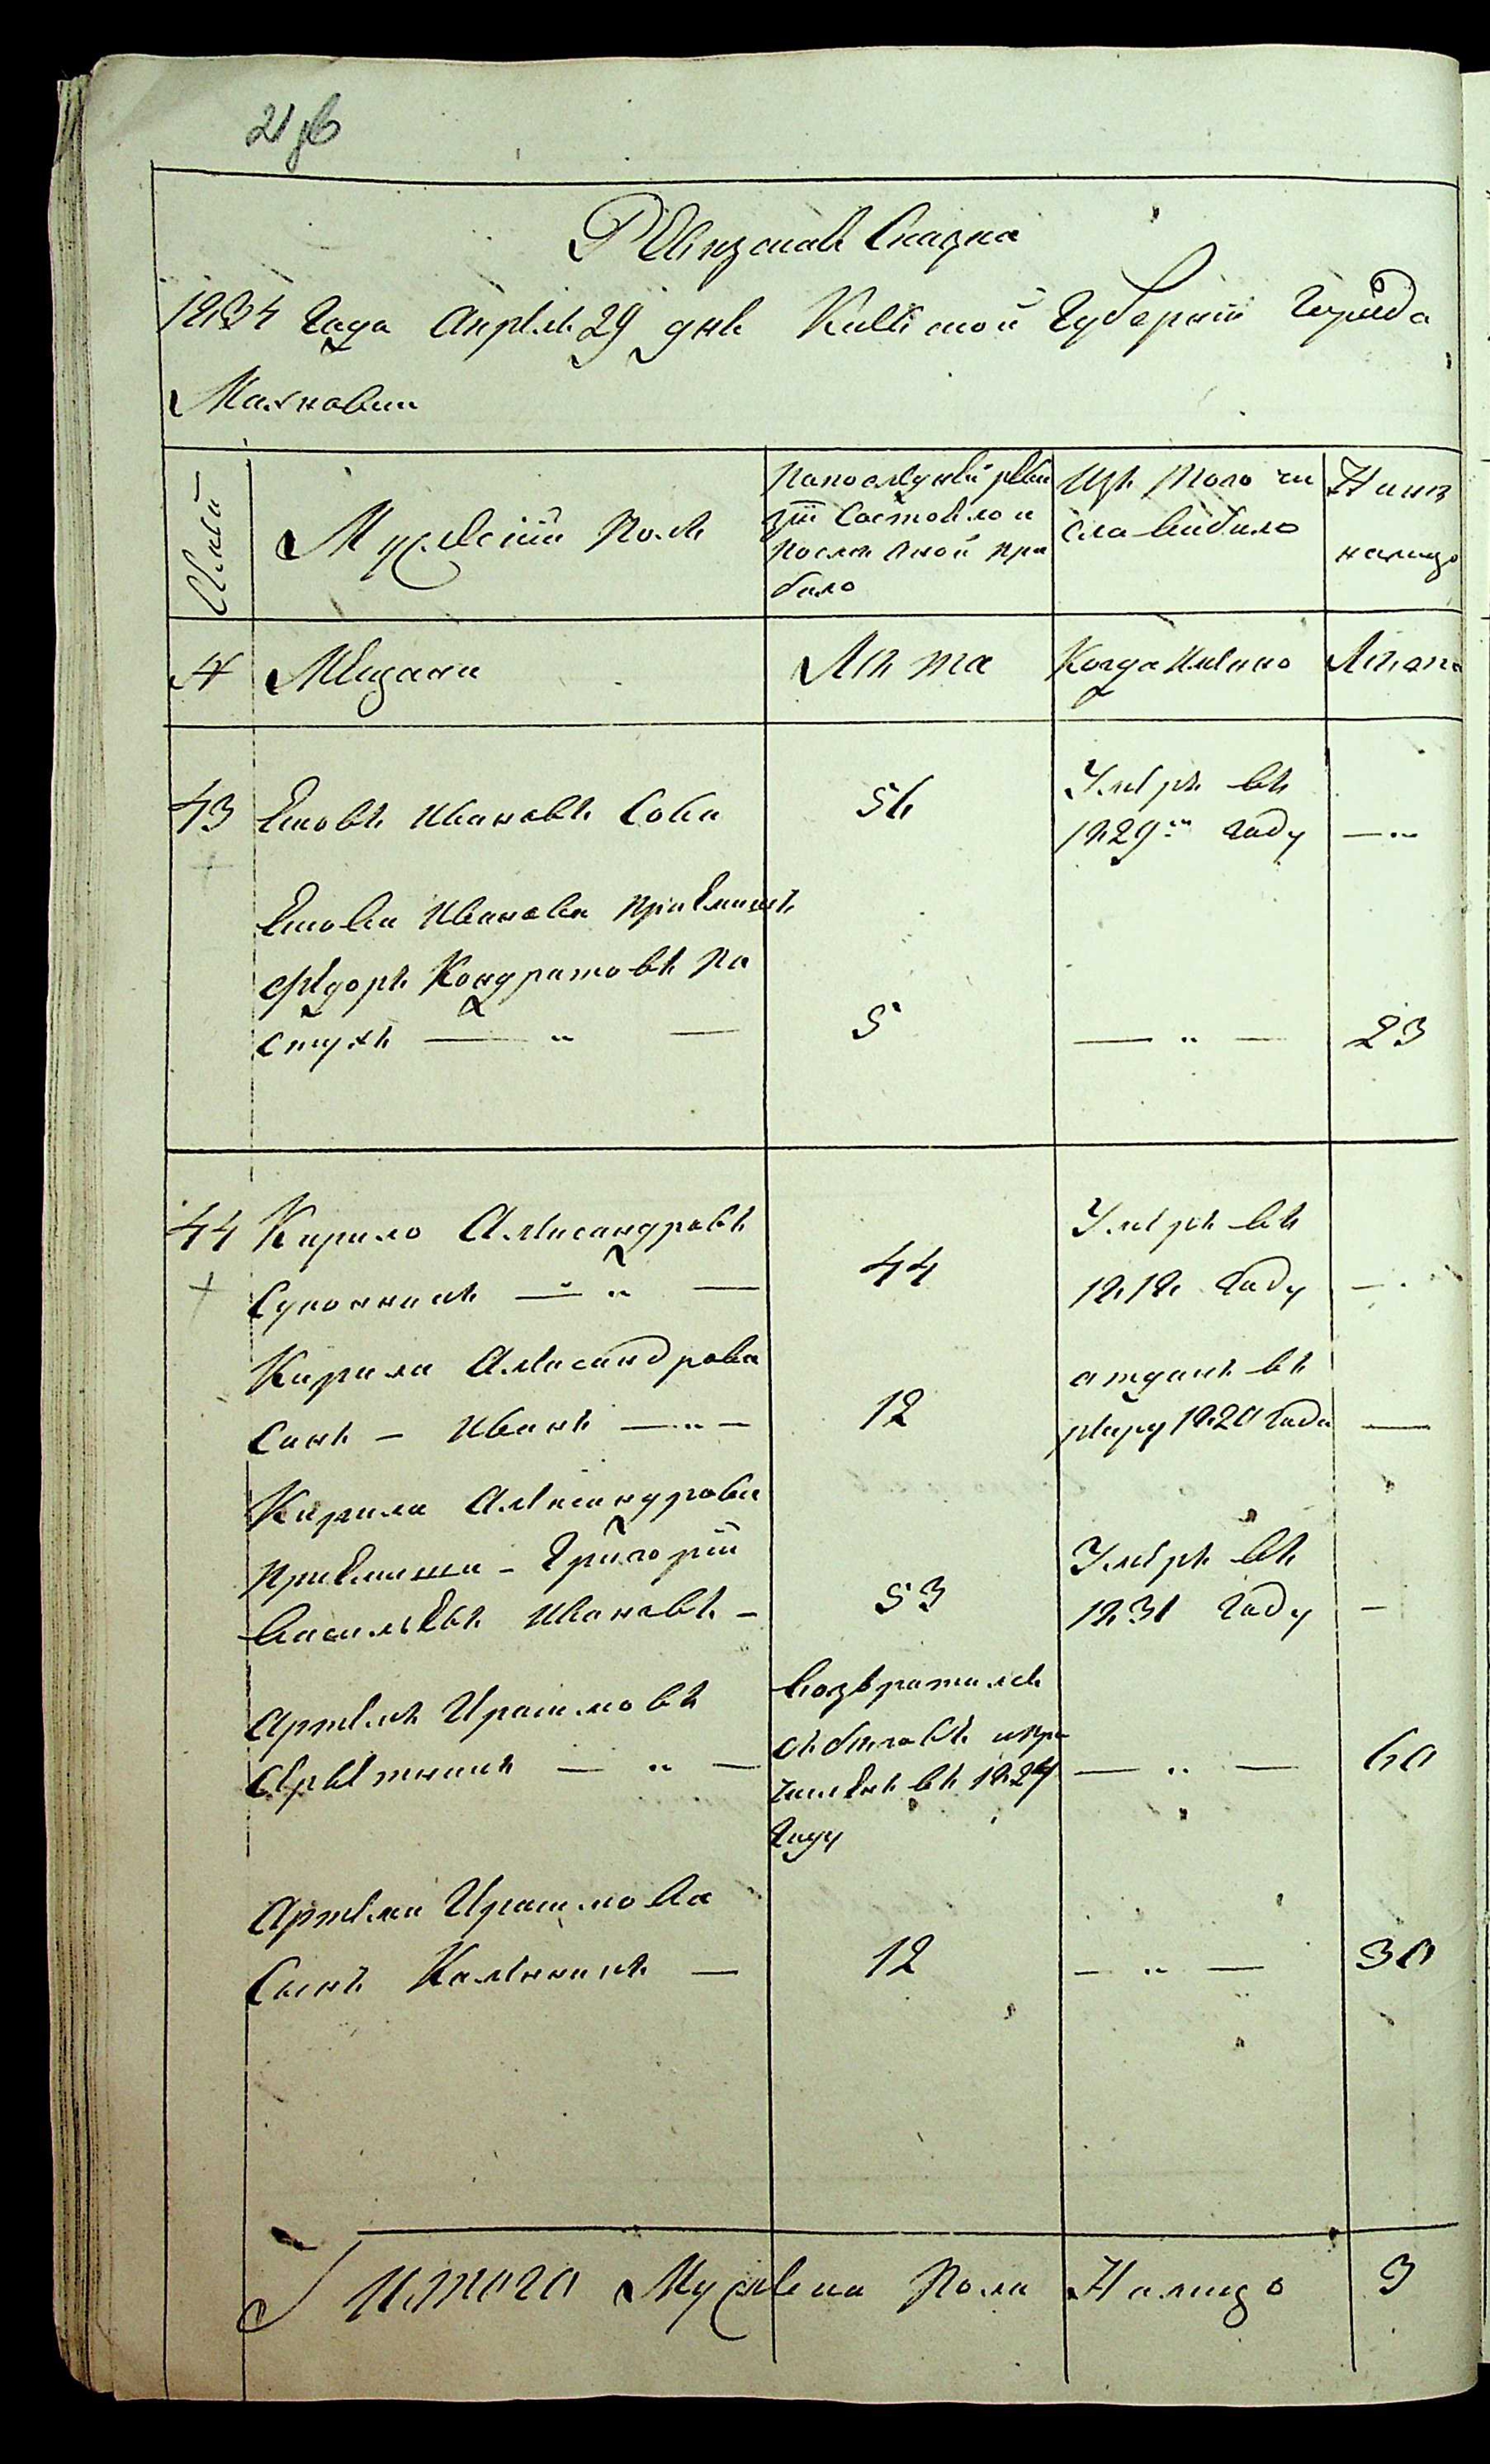 Ревизская Сказка
1834 Года Апреля 29 дня Киевской Губернии Города
Махновки
Семьи
Мужеский Полъ
Попоследней реви
зіи Состояло и
после оной при
было
Изъ Того чи
сла выбыло
Ныне
налицо
№
Мещани
Лета
Когда Имянно
Лета
43
Яковъ Ивановъ Соба
56
Умеръ въ
1829м Году
— „
Якова Иванова приемышъ
Федоръ Кондратовъ Па
стухъ — „ —
5
— „ —
23
44
Кирило Александровъ
Суконникъ — „ —
44
Умеръ въ
1818 Году
—
Кирила Александрова
Сынъ — Иванъ — „ —
12
отданъ въ
рекру 1820 Года
—
Кирила Александрова
приемыши — Григорій
Васильевъ Ивановъ —
53
Умеръ въ
1831 Году
—
Артемъ Герасимовъ
— „ —
Возвратился
изъ беговъ и при
численъ въ 1827
Году
— „ —
60
Артема Герасимова
Сынъ Калиникъ —
12
— „ —
30
Итого Мужеска Пола Налицо 3